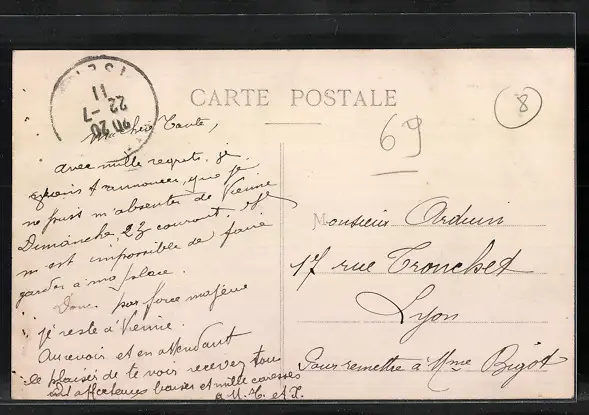 CARTE POSTALE
8
69
ISÈRE
20 20
22 -7
11
Ma chère Tante,
avec mille regrets, je
t'annoncer, que je
ne puis m'absenter de Vienne
Dimanche, 23 courant, et je
m'est impossible de faire
garder à ma place.
Donc par force majeure
je reste à Vienne.
Au revoir et en attendant
le plaisir de te voir recevez tous
affectueux baisers et mille caresses
à M. C. et L.
Monsieur Arduin
17 rue Tronchet
Lyon
Pour remettre à Mme Bigot